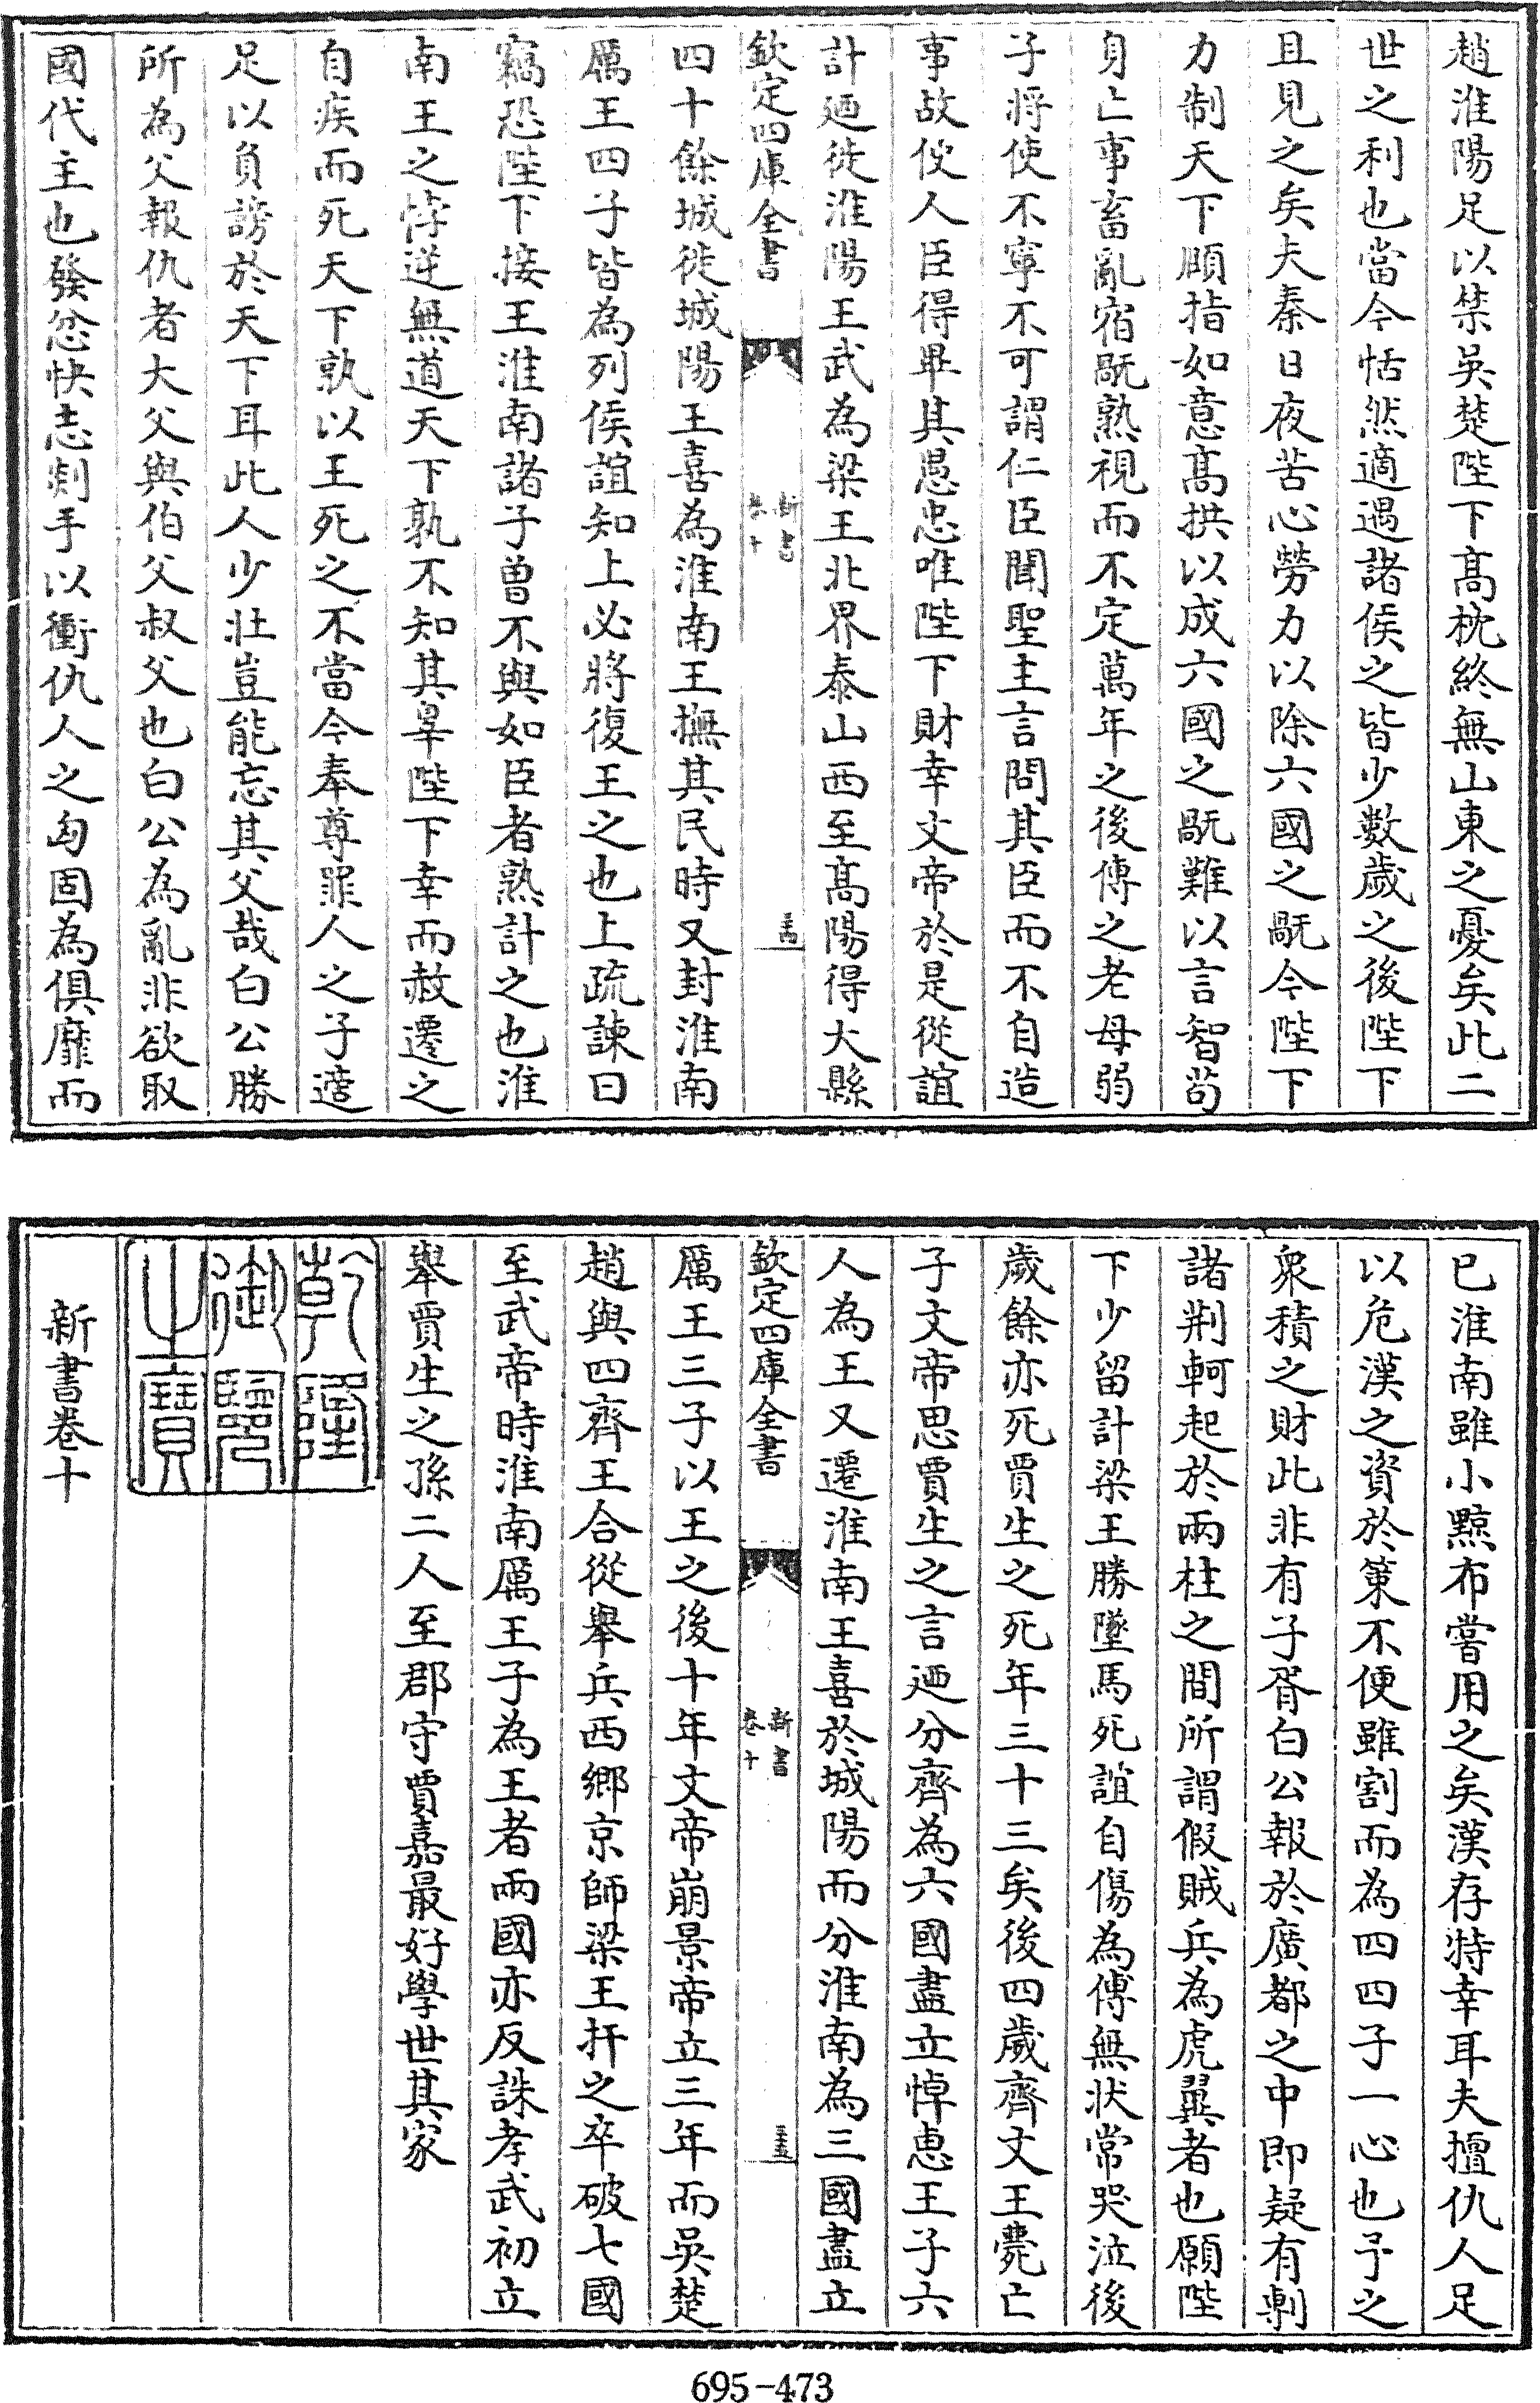 趙淮陽足以禁吳楚陛下高枕終無山東之憂矣此二
世之利也當今恬然適遇諸侯之皆少數歲之後陛下
且見之矣夫秦日夜苦心勞力以除六國之旤今陛下
力制天下頤指如意高拱以成六國之旤難以言智茍
身亡事畜亂宿旤熟視而不定萬年之後傳之老母弱
子將使不寧不可謂仁臣聞聖主言問其臣而不自造
事故使人臣得畢其愚忠唯陛下財幸文帝於是從誼
計廼徙淮陽王武為梁王北界泰山西至高陽得大縣
欽定四庫全書
新書
卷十
四十餘城徙城陽王喜為淮南王撫其民時又封淮南
厲王四子皆為列侯誼知上必將復王之也上疏諫曰
竊恐陛下接王淮南諸子曾不與如臣者熟計之也淮
南王之悖逆無道天下孰不知其辠陛下幸而赦遷之
自疾而死天下孰以王死之不當今奉尊罪人之子適
足以負謗於天下耳此人少壯豈能忘其父哉白公勝
所為父報仇者大父與伯父叔父也白公為亂非欲取
國代主也發忿快志剡手以衝仇人之匈固為俱靡而
已淮南雖小黥布嘗用之矣漢存特幸耳夫擅仇人足
以危漢之資於策不便雖割而為四四子一心也予之
衆積之財此非有子胥白公報於廣都之中即疑有剸
諸荆軻起於兩柱之間所謂假賊兵為虎翼者也願陛
下少留計梁王勝墜馬死誼自傷為傅無狀常哭泣後
歲餘亦死賈生之死年三十三矣後四歲齊文王薨亡
子文帝思賈生之言廼分齊為六國盡立悼惠王子六
人為王又遷淮南王喜於城陽而分淮南為三國盡立
欽定四庫全書
新書
卷十
厲王三子以王之後十年文帝崩景帝立三年而吳楚
趙與四齊王合從舉兵西鄉京師梁王扞之卒破七國
至武帝時淮南厲王子為王者兩國亦反誅孝武初立
舉賈生之孫二人至郡守賈嘉最好學世其家
乾隆御覽之寶
新書卷十
695-473